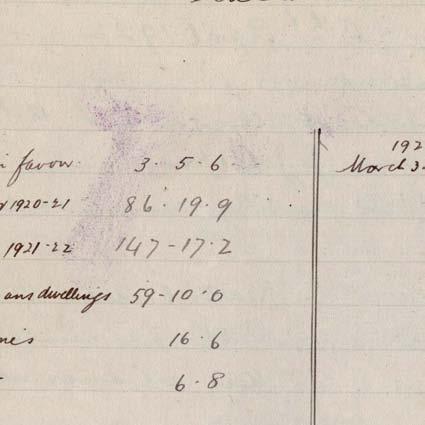 favour 3 . 5 . 6
1920-21 86 . 19 . 9
1921-22 147 - 17 . 2
dwellings 59 - 10 . 0
16 . 6
6 . 8
192
March 3